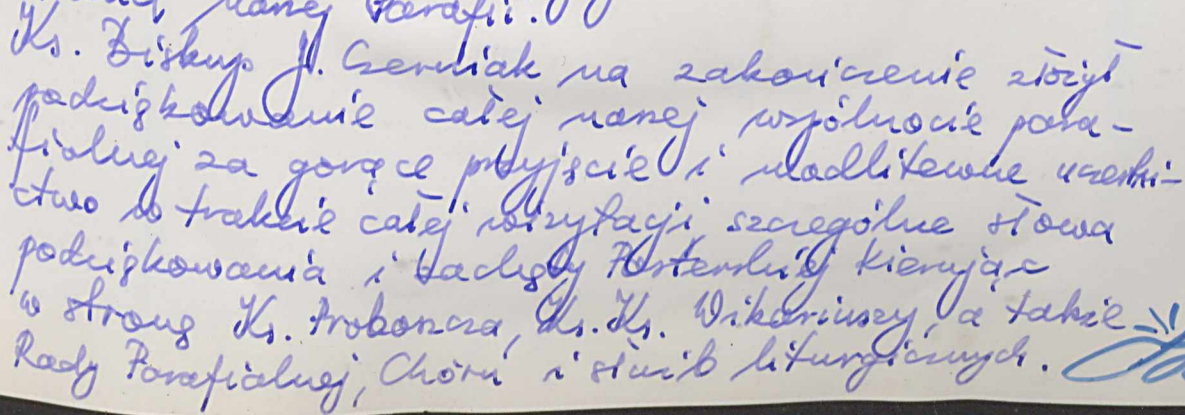 naszej Parafii.
Ks. Biskup J. Czerniak na zakończenie złożył
podziękowanie całej naszej wspólnocie para-
fialnej za gorące przyjęcie i modlitewne uczestni-
ctwo w trakcie całej wizytacji, szczególne słowa
podziękowania i zachęty Pasterskiej kierując
w stronę Ks. Proboszcza, Ks. Ks. Wikariuszy, a także
Rady Parafialnej, Chóru i służb liturgicznych.